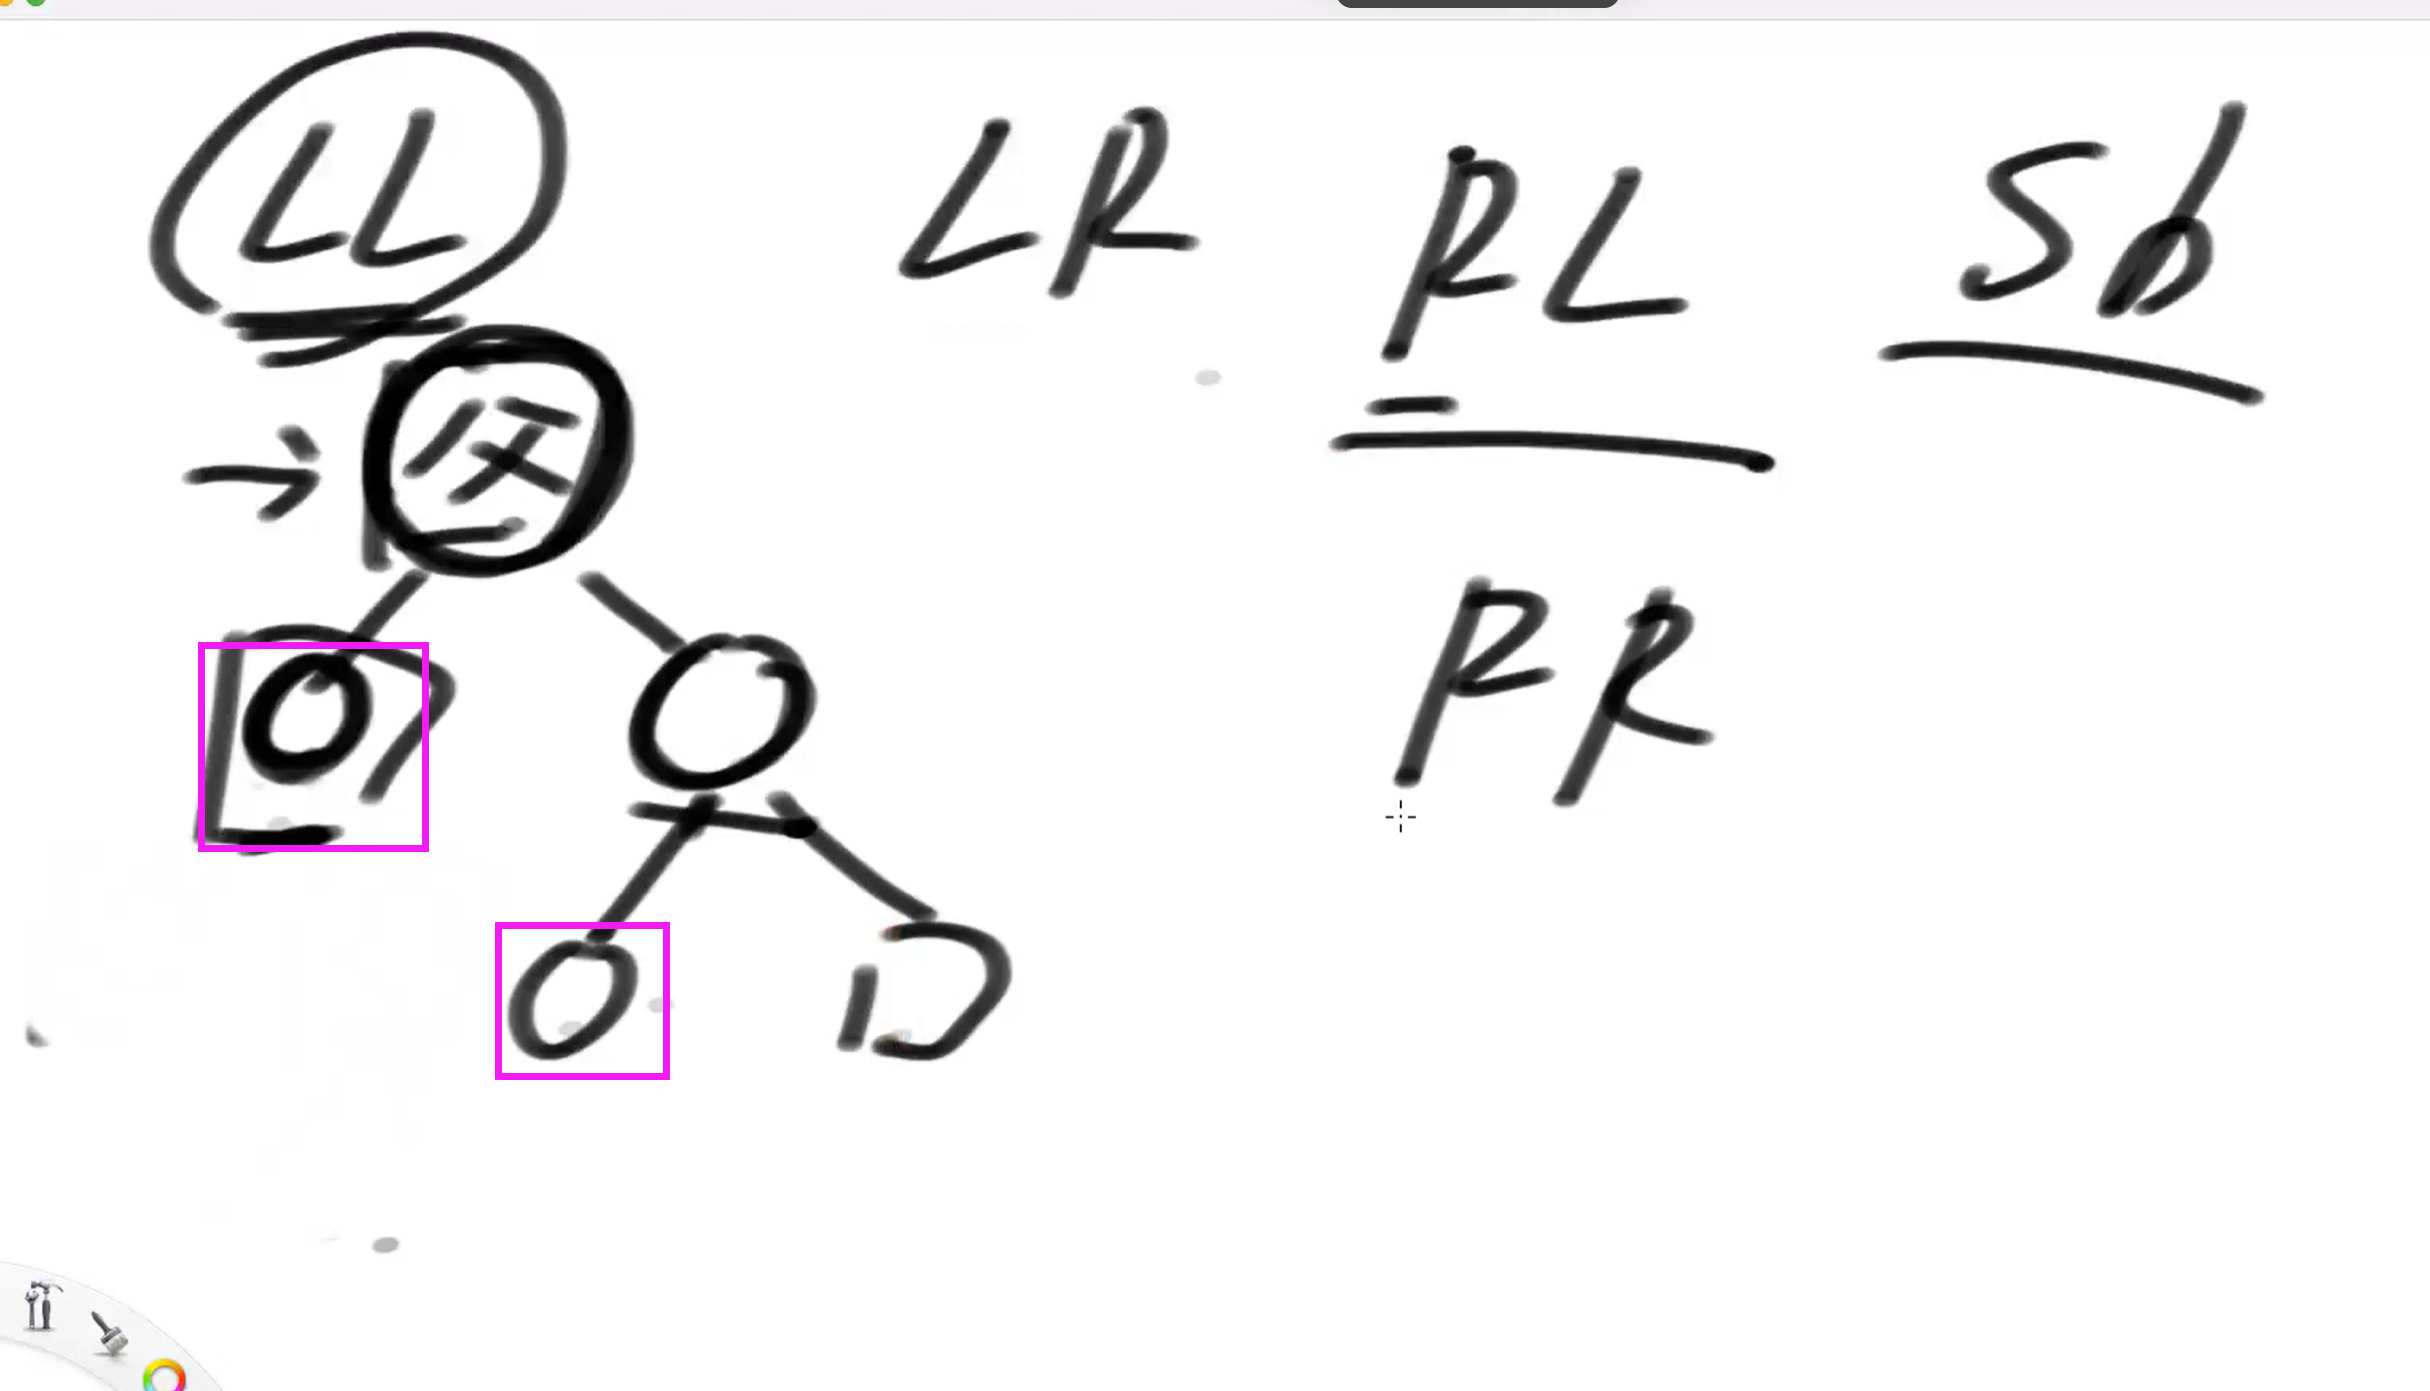 LL LR RL Sb
任
RR